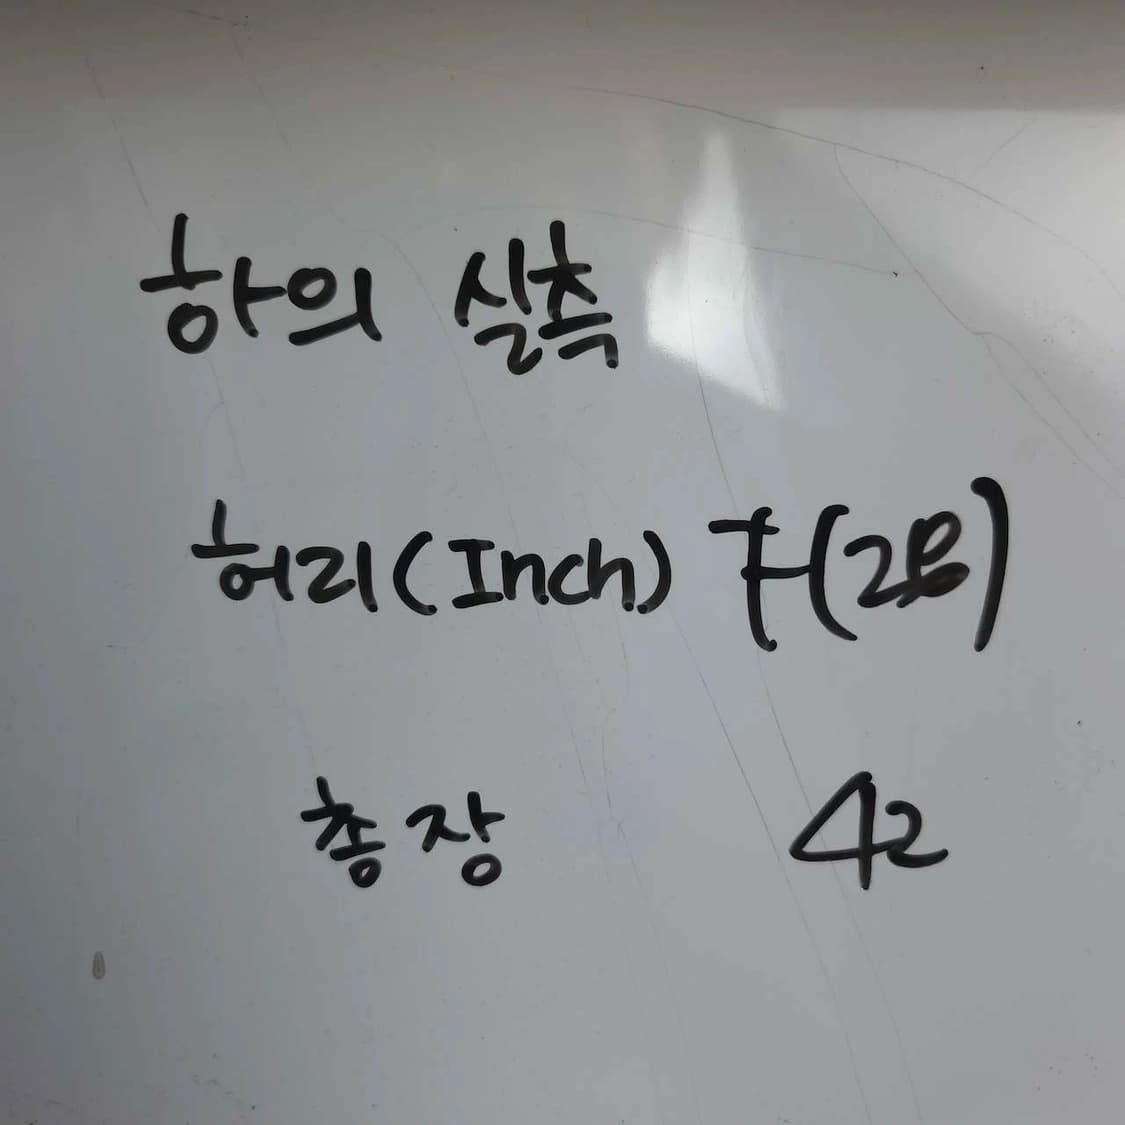 하의 실측
허리(Inch) F(28)
총장 42